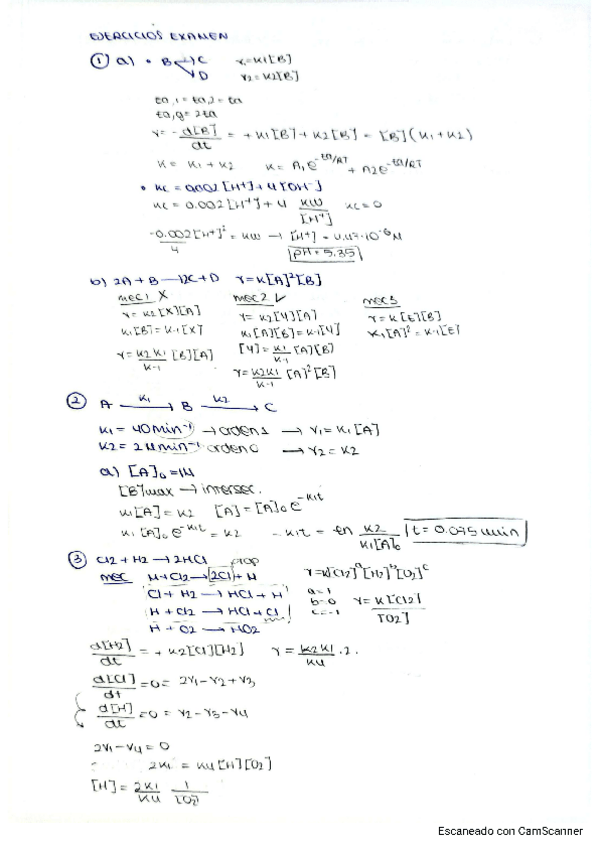 EJERCICIOS EXAMEN
① a) • B → C r1 = K1[B]
↘ D r2 = K2[B]
ta,1 = ta,2 = ta
ta,g = 2ta
r = - d[B]/dt = + K1[B] + K2[B] = [B](K1 + K2)
K = K1 + K2 K = A1e^-ta/RT + A2e^-ta/RT
• KC = 0.002[H+] + 4[OH-]
KC = 0.002[H+] + 4 KW/[H+] KC = 0
-0.002[H+]²/4 = KW → [H+] = 4.47·10^-6 M
pH = 5.35
b) 2A + B → 2C + D r = K[A]²[B]
mec1 X mec2 ✓ mec3
r = K2[X][A] r = K2[Y][A] r = K[E][B]
K1[B] = K-1[X] K1[A][B] = K-1[Y] K1[A]² = K-1[E]
r = K2K1/K-1 [B][A] [Y] = K1/K-1 [A][B]
r = K2K1/K-1 [A]²[B]
② A —K1→ B —K2→ C
K1 = 40 min⁻¹ → orden 1 → r1 = K1[A]
K2 = 2 M min⁻¹ orden 0 → r2 = K2
a) [A]o = 1M
[B]max → intersec.
K1[A] = K2 [A] = [A]o e^-K1t
K1[A]o e^-K1t = K2 - K1t = en K2/K1[A]o t = 0.075 min
③ Cl2 + H2 → 2HCl prop
mec M + Cl2 → 2Cl + M r = K[Cl2]^a[H2]^b[O2]^c
Cl + H2 → HCl + H a = 1
H + Cl2 → HCl + Cl b = 0 c = -1 r = K[Cl2]/[O2]
H + O2 → HO2
d[H2]/dt = + K2[Cl][H2] r = K2K1/K4 · 2.
d[Cl]/dt = 0 = 2r1 - r2 + r3
d[H]/dt = 0 = r2 - r3 - r4
2r1 - r4 = 0
2K1 = K4[H][O2]
[H] = 2K1/K4 1/[O2]
Escaneado con CamScanner